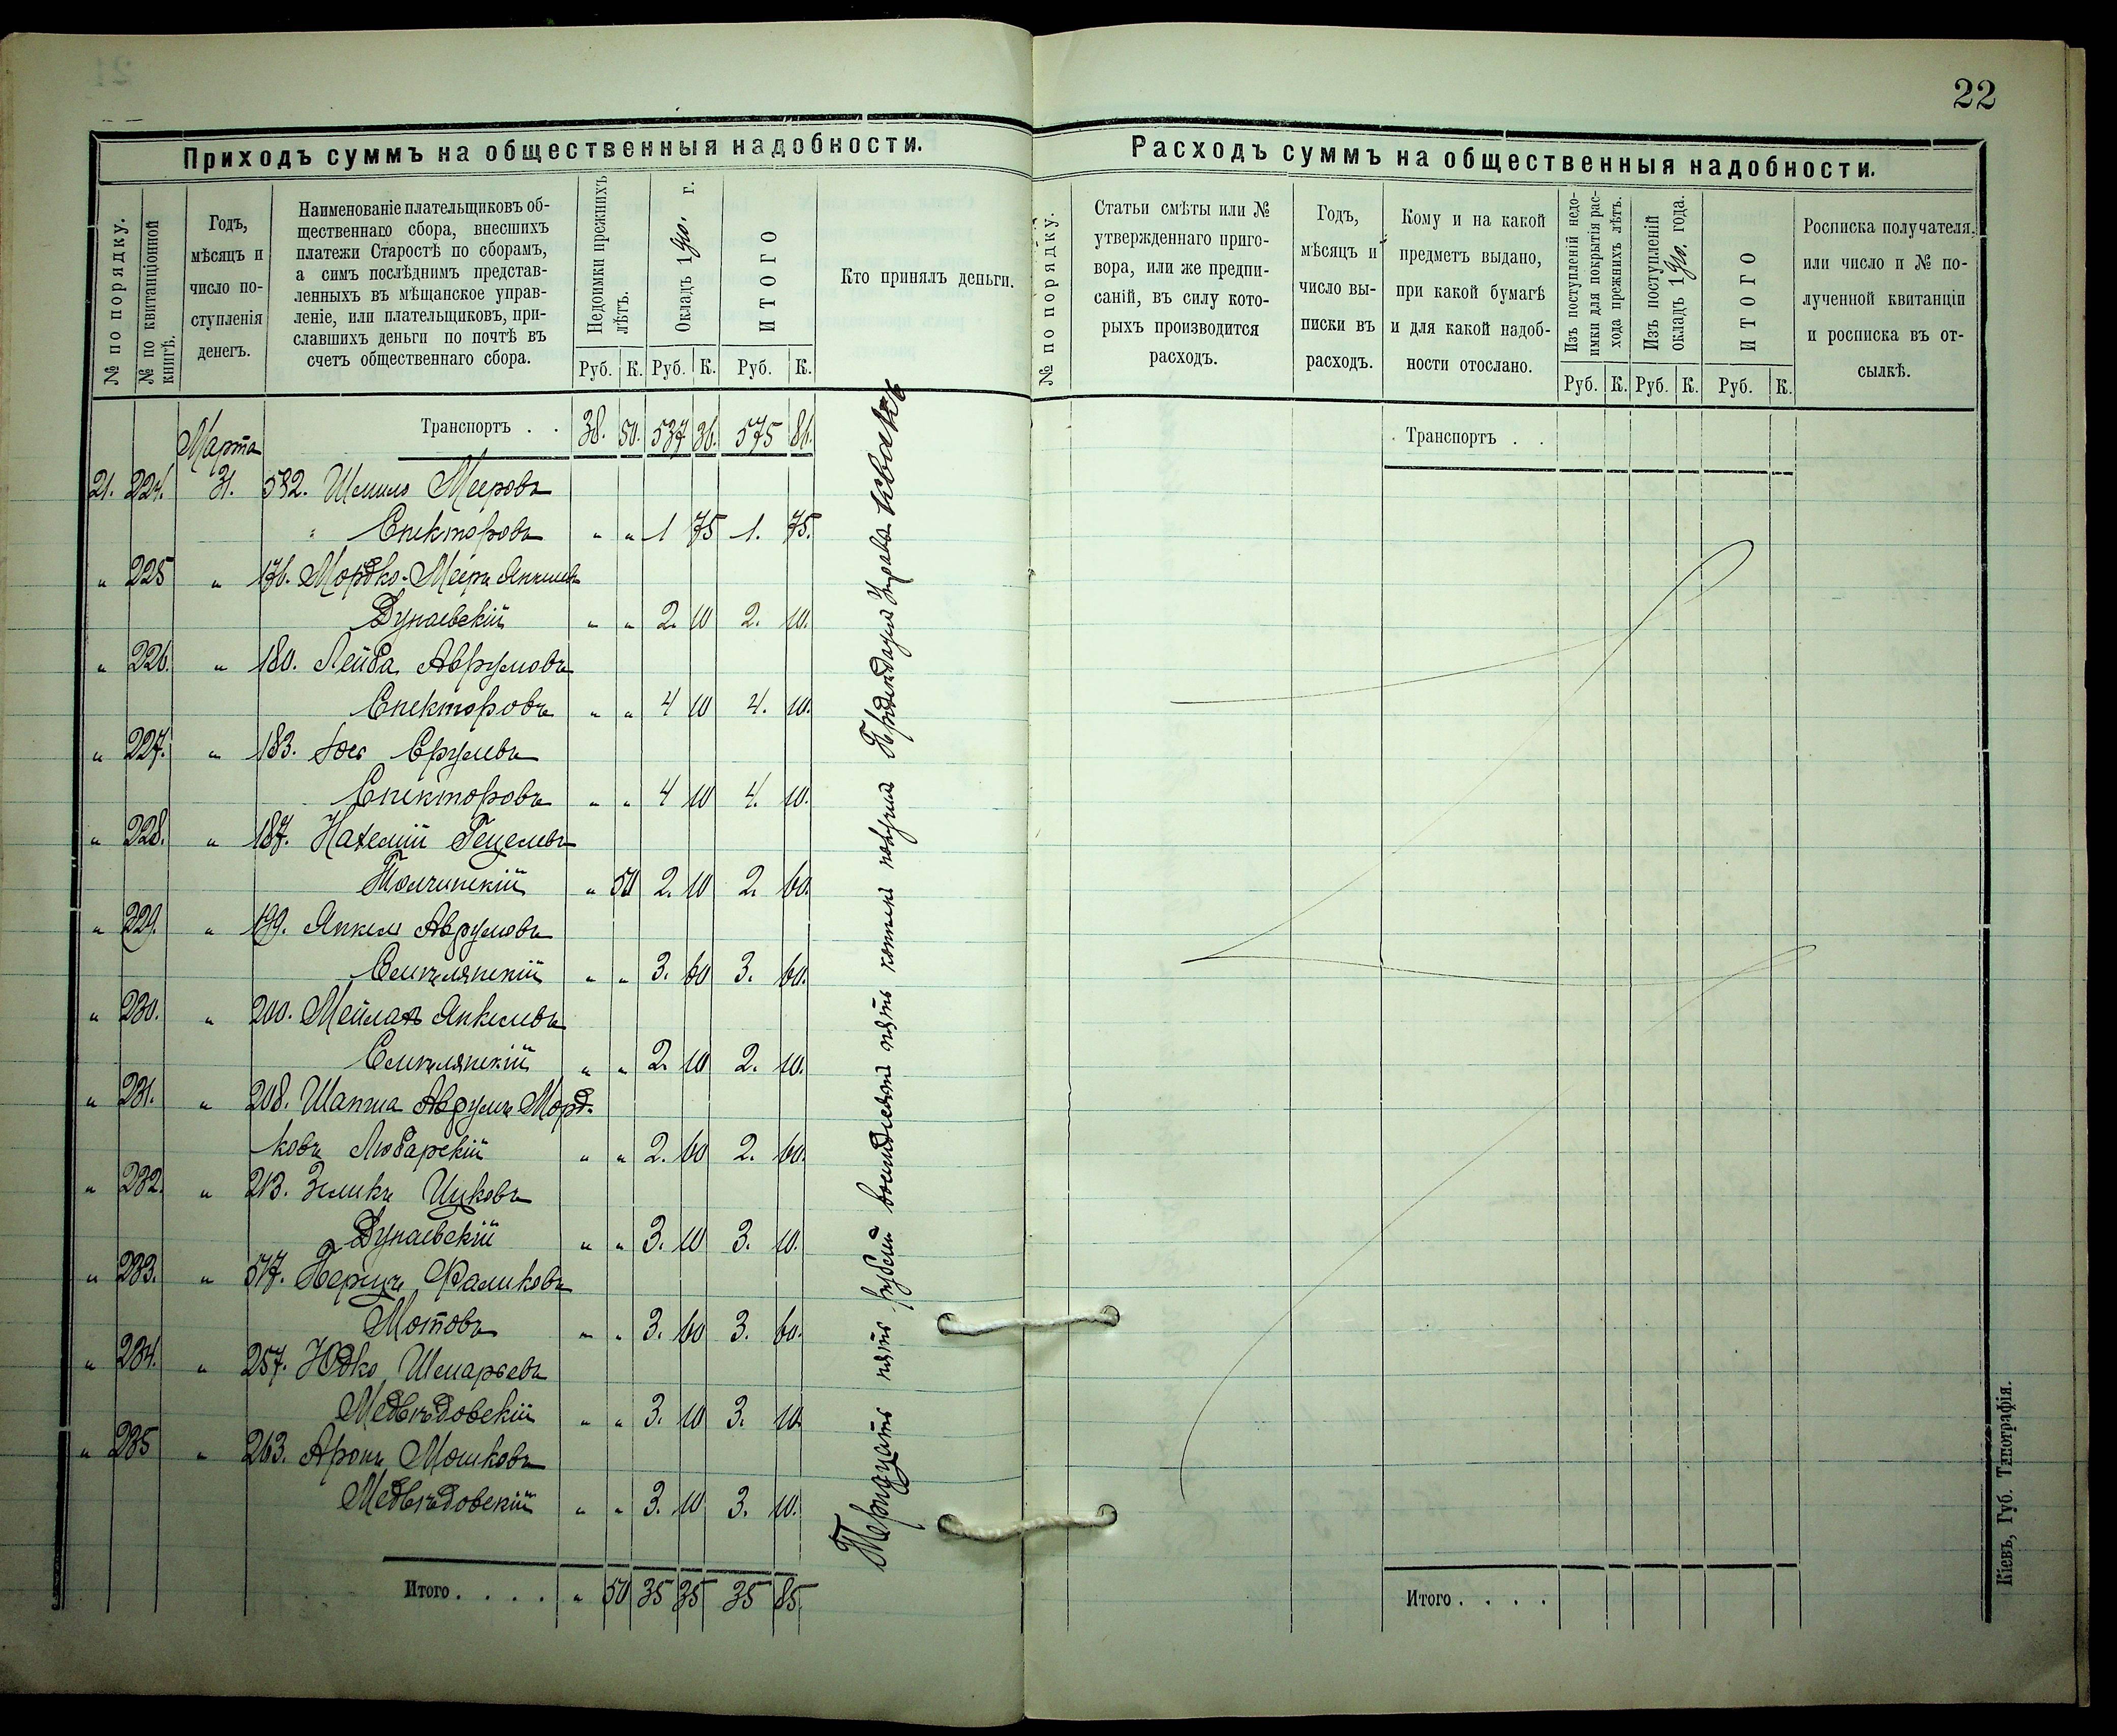 22
Приходъ суммъ на общественныя надобности.
№ по порядку.
№ по квитанціонной книгѣ.
Годъ,
мѣсяцъ и
число по-
ступленія
денегъ.
Наименованіе плательщиковъ об-
щественнаго сбора, внесшихъ
платежи Старостѣ по сборамъ,
а симъ послѣднимъ представ-
ленныхъ въ мѣщанское управ-
леніе, или плательщиковъ, при-
славшихъ деньги по почтѣ въ
счетъ общественнаго сбора.
Недоимки прежнихъ
лѣтъ.
Окладъ 190. г.
ИТОГО
Кто принялъ деньги.
Руб. К. Руб. К. Руб. К.
Транспортъ . . 38. 50. 537 36. 575 86.
Марта
21. 224. 31. 532. Шмило Мееровъ
" Спекторовъ " " 1 75 1. 75.
" 225 " 176. Мордко-Мееръ Янкелевъ
Дунаевскій " " 2. 10 2. 10.
" 226. " 180. Лейба Аврумовъ
Спекторовъ " " 4 10 4. 10.
" 227. " 183. Іось Срулевъ
Спекторовъ " " 4 10 4. 10.
" 228. " 187. Нахемій Гецелевъ
Толчинскій " 50 2. 10 2. 60.
" 229. " 199. Янкель Аврумовъ
Смилянскій " " 3. 60 3. 60.
" 230. " 200. Мейлахъ Янкелевъ
Смилянскій " " 2. 10 2. 10.
" 231. " 208. Шапша Аврумъ Морд-
ковъ Любарскій " " 2. 60 2. 60.
" 232. " 213. Зеликъ Ицковъ
Дунаевскій " " 3. 10 3. 10.
" 233. " 517. Перецъ Фаликовъ
Мотовъ " " 3. 60 3. 60.
" 234. " 257. Юдко Шмарьевъ
Медвѣдовскій " " 3. 10 3. 10.
" 235 " 263. Аронъ Мошковъ
Медвѣдовскій " " 3. 10 3. 10.
Итого . . . . " 50 35 35 35 85.
Тридцать пять рублей восемдесят пять копеек получил
Расходъ суммъ на общественныя надобности.
№ по порядку.
Статьи смѣты или №
утвержденнаго приго-
вора, или же предпи-
саній, въ силу кото-
рыхъ производится
расходъ.
Годъ,
мѣсяцъ и
число вы-
писки въ
расходъ.
Кому и на какой
предметъ выдано,
при какой бумагѣ
и для какой надоб-
ности отослано.
Изъ поступленій недо-
имки для покрытія рас-
хода прежнихъ лѣтъ.
Изъ поступленій
окладъ 190. года.
ИТОГО
Росписка получателя,
или число и № по-
лученной квитанціи
и росписка въ от-
сылкѣ.
Руб. К. Руб. К. Руб. К.
Транспортъ . .
Итого . . . .
Кіевъ, Губ. Типографія.